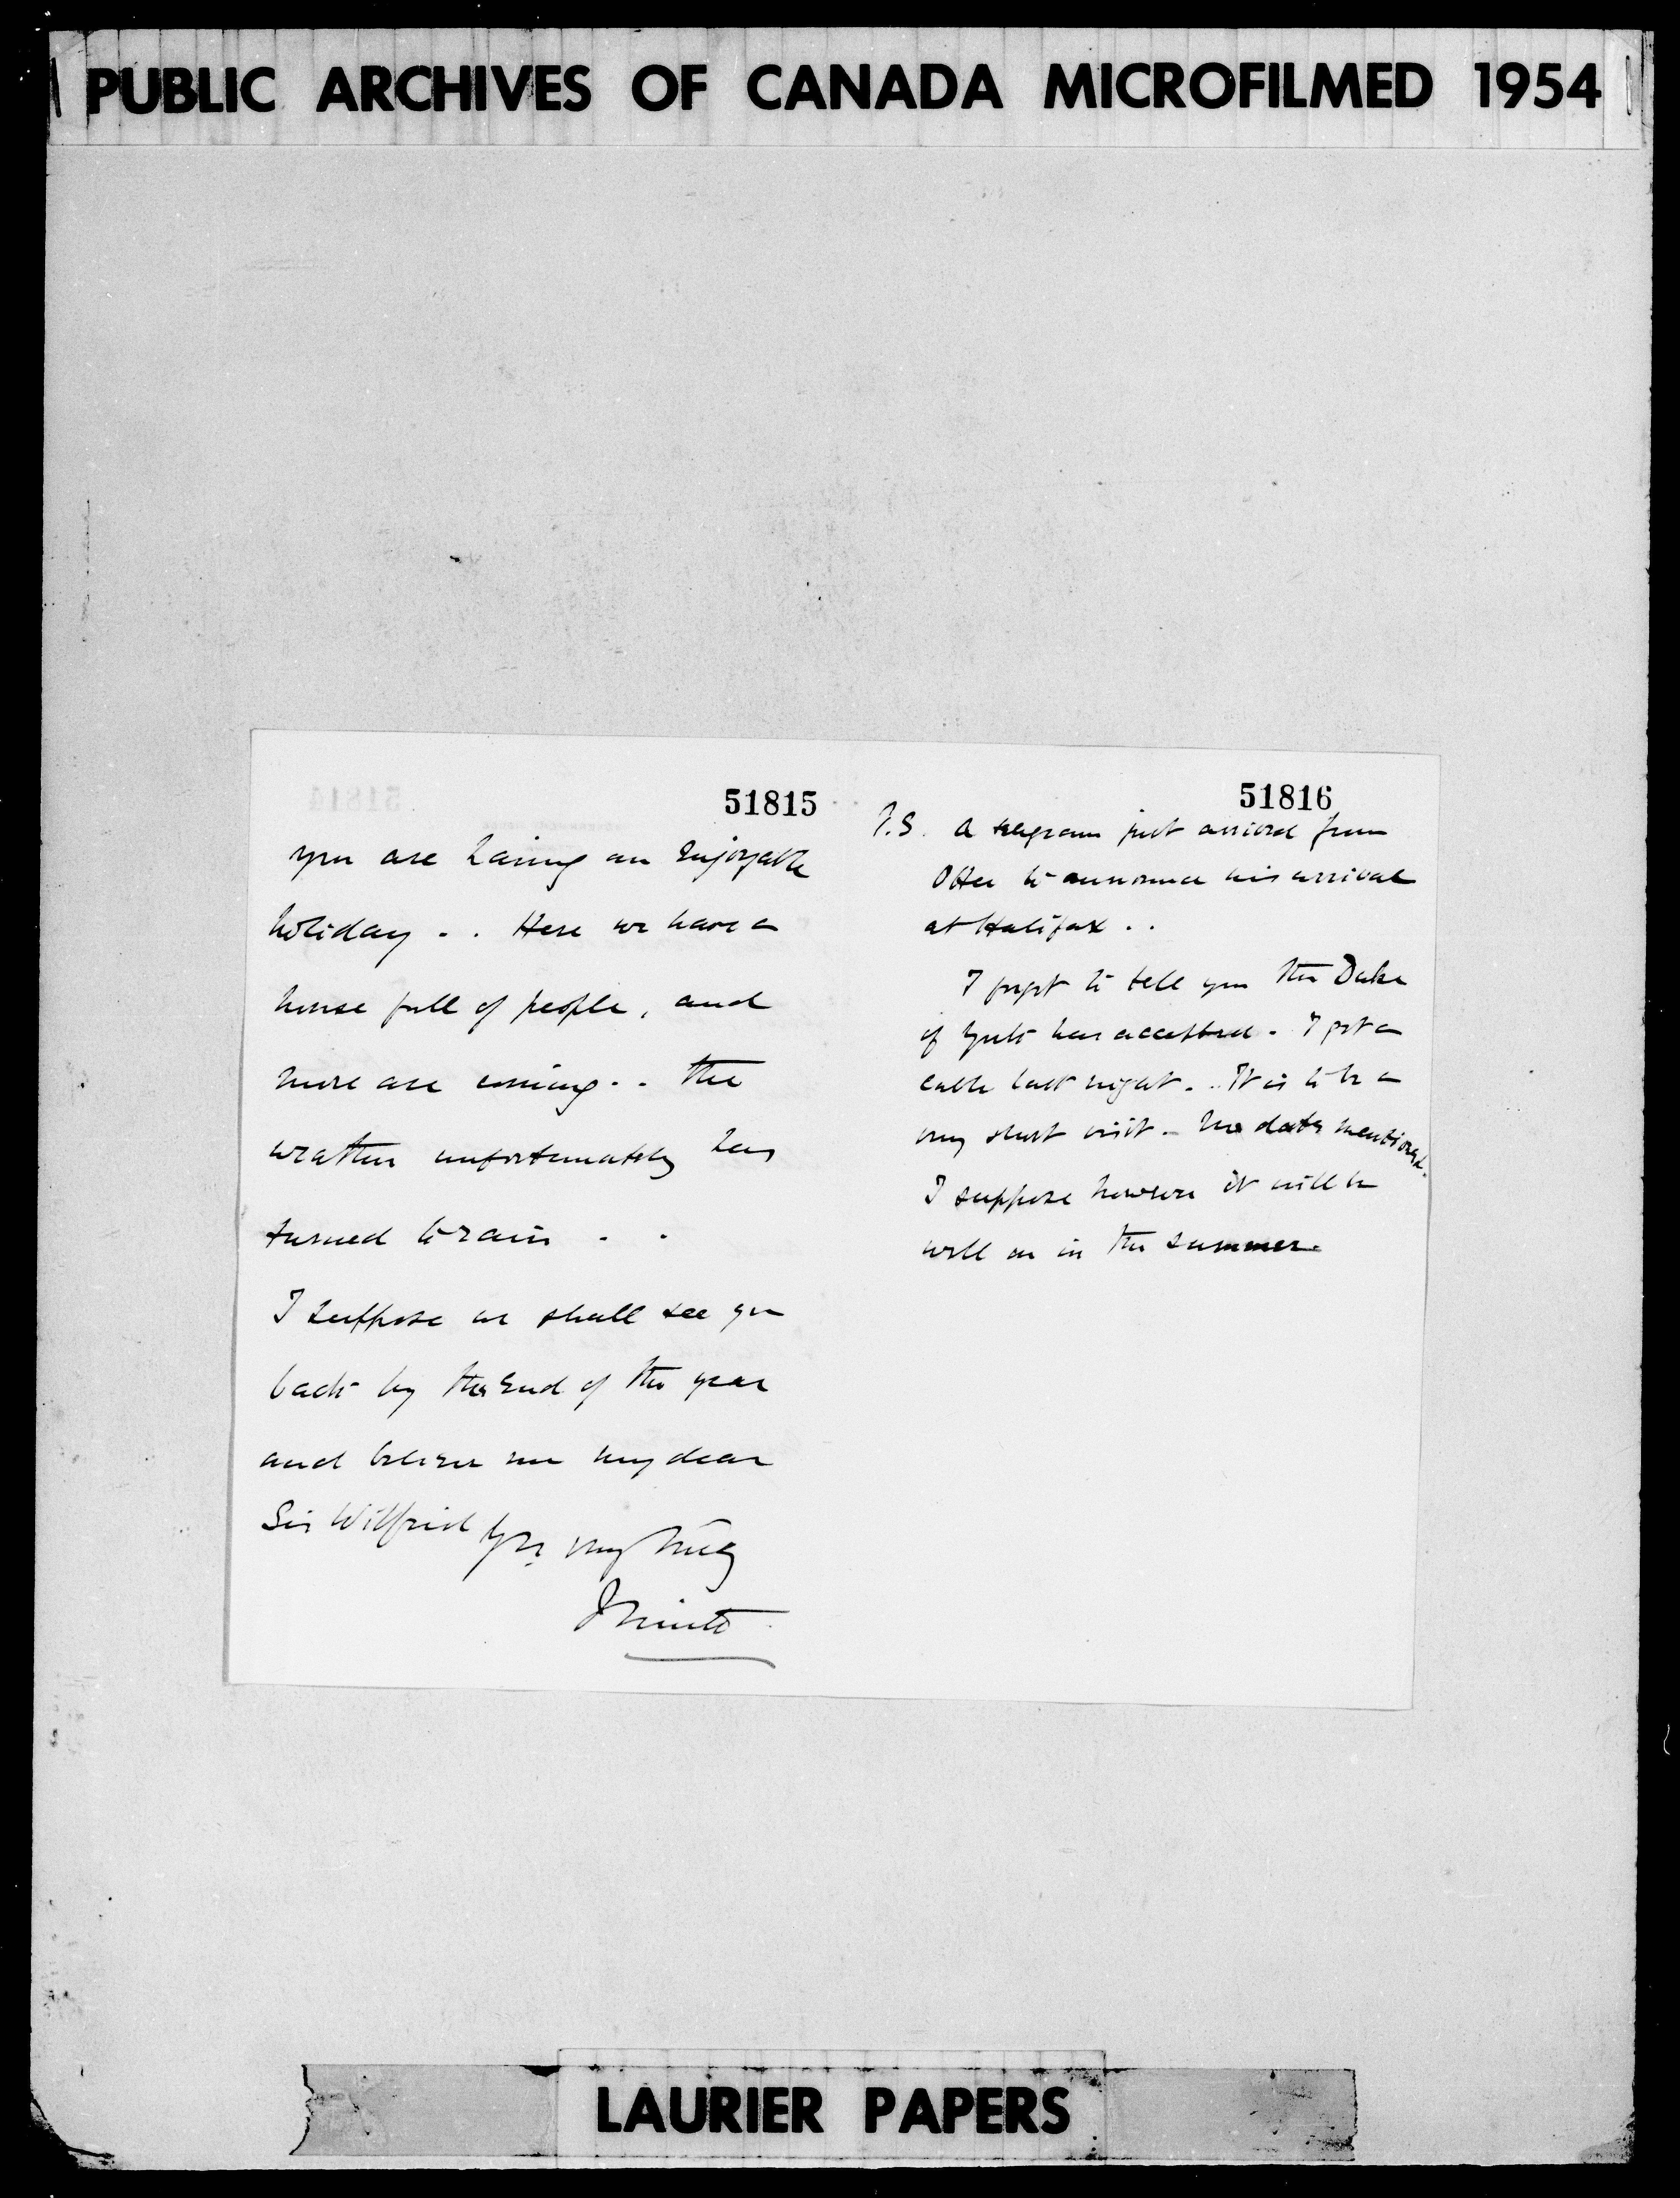 PUBLIC ARCHIVES OF CANADA MICROFILMED 1954
51815
you are having an enjoyable
holiday . . Here we have a
house full of people, and
more are coming . . The
weather unfortunately has
turned to rain . .
I suppose we shall see you
back by the end of the year
and believe me my dear
Sir Wilfrid Yrs very truly
Minto
51816
P.S. A telegram just arrived from
Otter to announce his arrival
at Halifax . .
I forgot to tell you the Duke
of York has accepted . I got a
cable last night . . It is to be a
very short visit . No date mentioned .
I suppose however it will be
well on in the summer .
LAURIER PAPERS